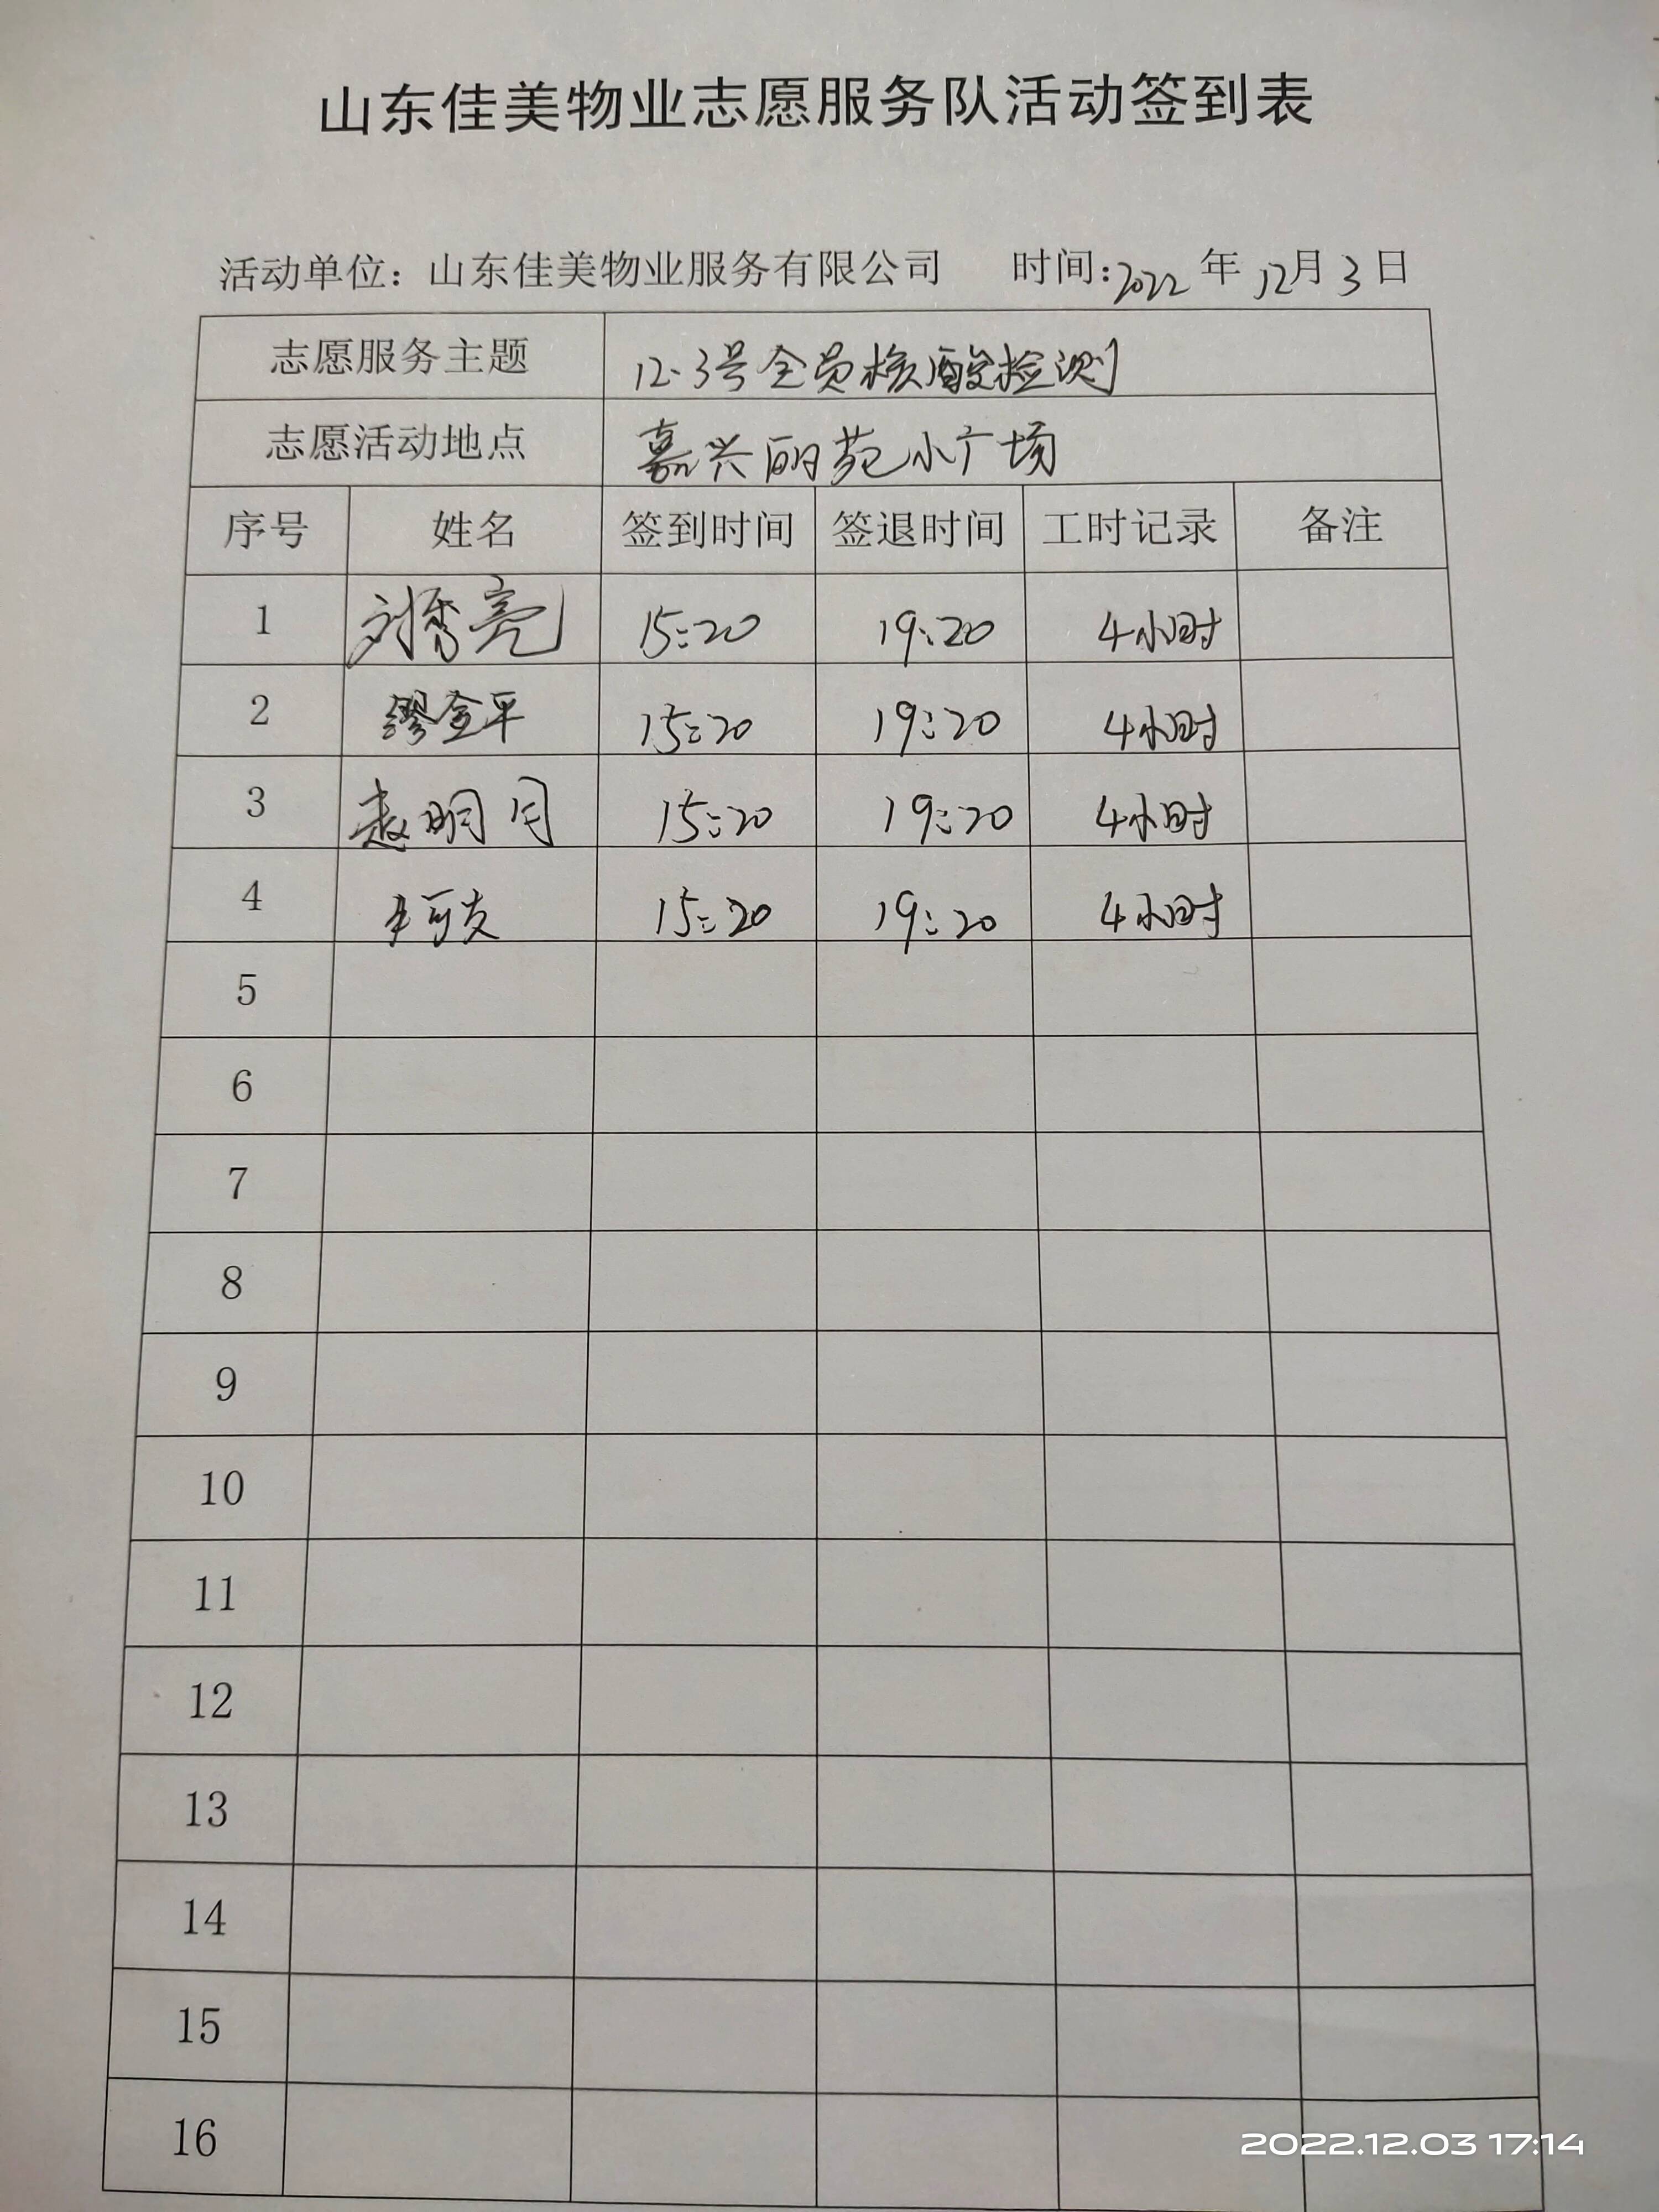 山东佳美物业志愿服务队活动签到表
活动单位：山东佳美物业服务有限公司 时间：2022 年 12月 3 日
志愿服务主题 12.3号全员核酸检测
志愿活动地点 嘉兴丽苑小广场
序号 姓名 签到时间 签退时间 工时记录 备注
1 刘秀亮 15:20 19:20 4小时
2 缪金平 15:20 19:20 4小时
3 赵明月 15:20 19:20 4小时
4 15:20 19:20 4小时
5
6
7
8
9
10
11
12
13
14
15
16
2022.12.03 17:14